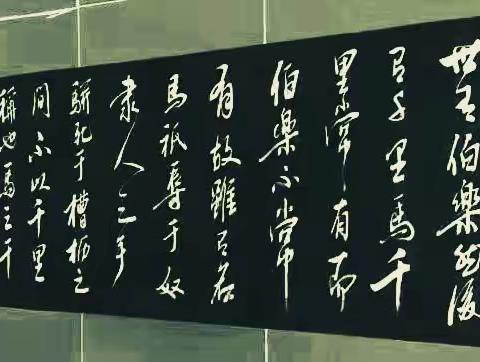 世有伯樂然後
有千里馬千
里馬常有而
伯樂不常
有故雖有名
馬祇辱于奴
隶人之手
駢死于槽枥之
間不以千里
稱也馬之千